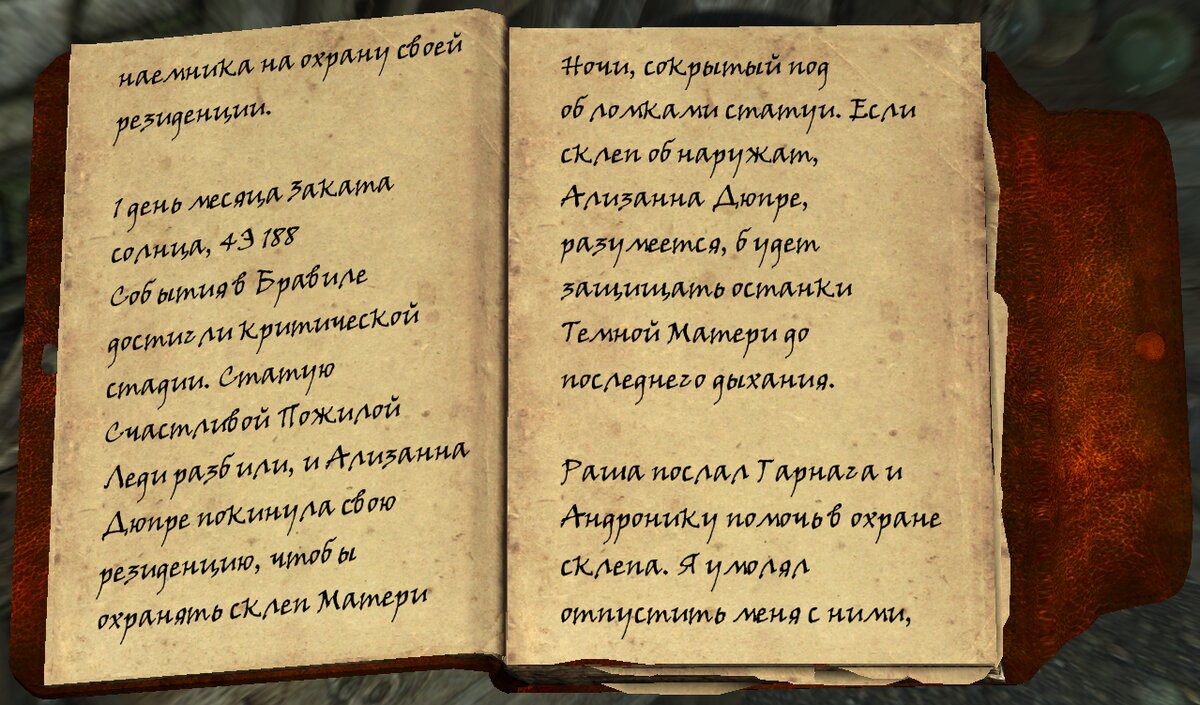 наемника на охрану своей
резиденции.
1 день месяца Заката
солнца, 4Э 188
События в Бравиле
достигли критической
стадии. Статую
Счастливой Пожилой
Леди разбили, и Ализанна
Дюпре покинула свою
резиденцию, чтобы
охранять склеп Матери
Ночи, сокрытый под
обломками статуи. Если
склеп обнаружат,
Ализанна Дюпре,
разумеется, будет
защищать останки
Темной Матери до
последнего дыхания.
Раша послал Гарнага и
Андронику помочь в охране
склепа. Я умолял
отпустить меня с ними,